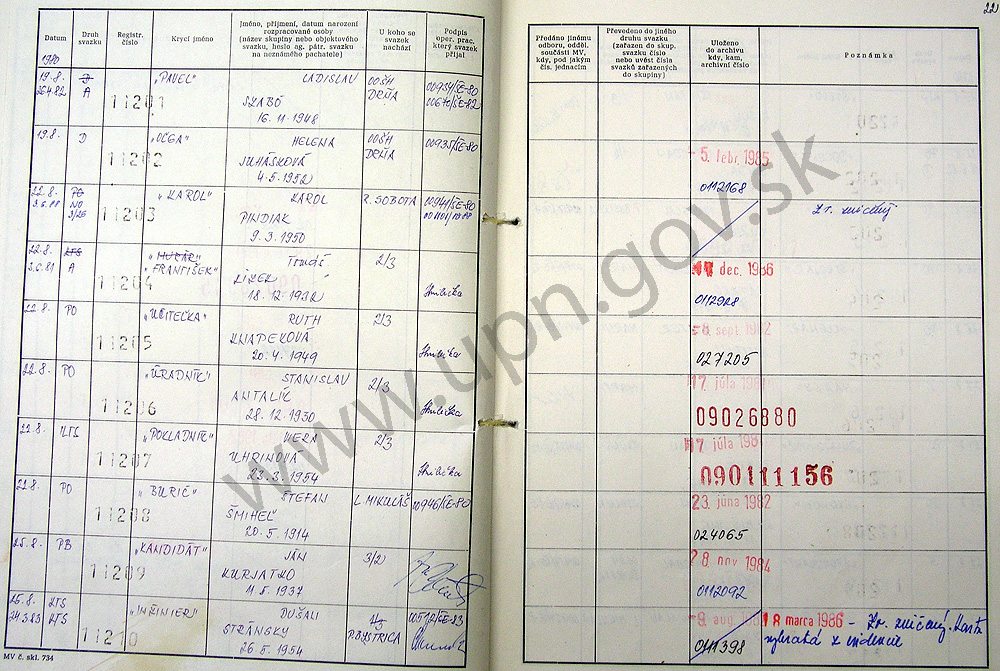 22
Datum
Druh svazku
Registr. číslo
Krycí jméno
Jméno, příjmení, datum narození rozpracované osoby (název skupiny nebo objektového svazku, heslo ag. pátr. svazku na neznámého pachatele)
U koho se svazek nachází
Podpis oper. prac. který svazek přijal
Předáno jinému odboru, odděl. součásti MV, kdy, pod jakým čís. jednacím
Převedeno do jiného druhu svazku (zařazen do skup. svazku číslo nebo uvést číslo svazků zařazených do skupiny)
Uloženo do archivu kdy, kam, archivní číslo
Poznámka
1980
19.8. "PAVEL" LADISLAV OOŠH 00954/ŠE-80
26.4.82 A 11201 SZABÓ DRŇA 00670/ŠE-82
16.11.1948
19.8. D "OĽGA" HELENA OOŠH 00935/ŠE-80
11202 JUHÁSKOVÁ DRŇA
4.5.1952
- 5. febr. 1985
0112168
22.8. PO "KAROL" KAROL R. SOBOTA 00941/ŠE-80
3.6.88 NO 11203 PINDIAK
9.3.1950
Zr. zničený
22.8. "HURÁR" 2/3
3.6.81 A "FRANTIŠEK"
11204 18.12.1932
dec. 1986
0112928
22.8. PO "UČITEĽKA" RUTH 2/3
11205 KNAPEKOVA
20.4.1949
sept. 1982
027205
22.8. PO "ÚRADNÍK" STANISLAV 2/3
11206 ANTALÍC
28.12.1930
17 júla
09026880
22.8. "POKLADNÍK" VIERA 2/3
11207 UHRINOVÁ
23.3.1954
júla
090111156
21.8. PO "BURIČ" ŠTEFAN L. MIKULÁŠ 00946/ŠE-80
11208 ŠMIHEĽ
20.5.1914
23. júna 1982
024065
25.8. PB "KANDIDÁT" JÁN 3/2
11209 KURJATKO
11.5.1937
28. nov 1984
0112092
25.8. KTS "INŽINIER" 00572/ŠE-83
24.3.83 KTS 11210 STRÁNSKY P. BYSTRICA
26.5.1954
18 marca 1986 - Zr. zničený. Karta
0111398 vybratá z evidencie
MV č. skl. 734
www.upn.gov.sk